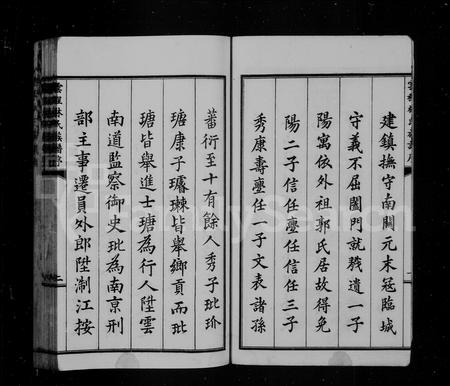 建鎮撫守南關元末冠臨城
守義不屈闔門就戮遺一子
陽寓依外祖郭氏居故得免
陽二子信任麐任信任三子
秀康壽麐任一子文表諸孫
蕃衍至十有餘人秀子玭玠
瑭康子璿琜皆舉鄉貢而玭
瑭皆舉進士瑭為行人陞雲
南道監察御史玭為南京刑
部主事遷員外郎陞浙江按
林氏族譜
FamilySearch